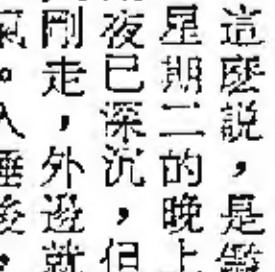 這麼說，是
星期二的晚上
夜已深沉，但
剛走，外邊，就